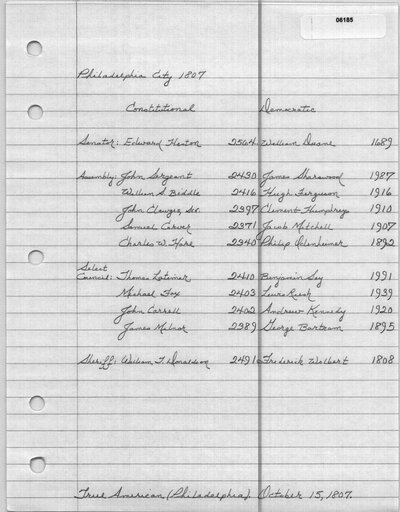 06185
Philadelphia City 1807
Constitutional Democratic
Senator: Edward Heston 2564 William Duane 1689
Assembly: John Sergeant 2430 James Sharswood 1987
William S. Biddle 2416 Hugh Ferguson 1916
John Clawges, Senr. 2397 Clement Humphreys 1910
Samuel Carver 2371 Jacob Mitchell 1907
Charles W. Hare 2340 Philip Odenheimer 1892
Select
Council: Thomas Latimer 2410 Benjamin Say 1991
Michael Fox 2403 Lewis Rush 1939
John Carrell 2402 Andrew Kennedy 1920
James Milnor 2389 George Bartram 1895
Sheriff: William T. Donaldson 2491 Frederick Wolbert 1808
True American (Philadelphia). October 15, 1807.